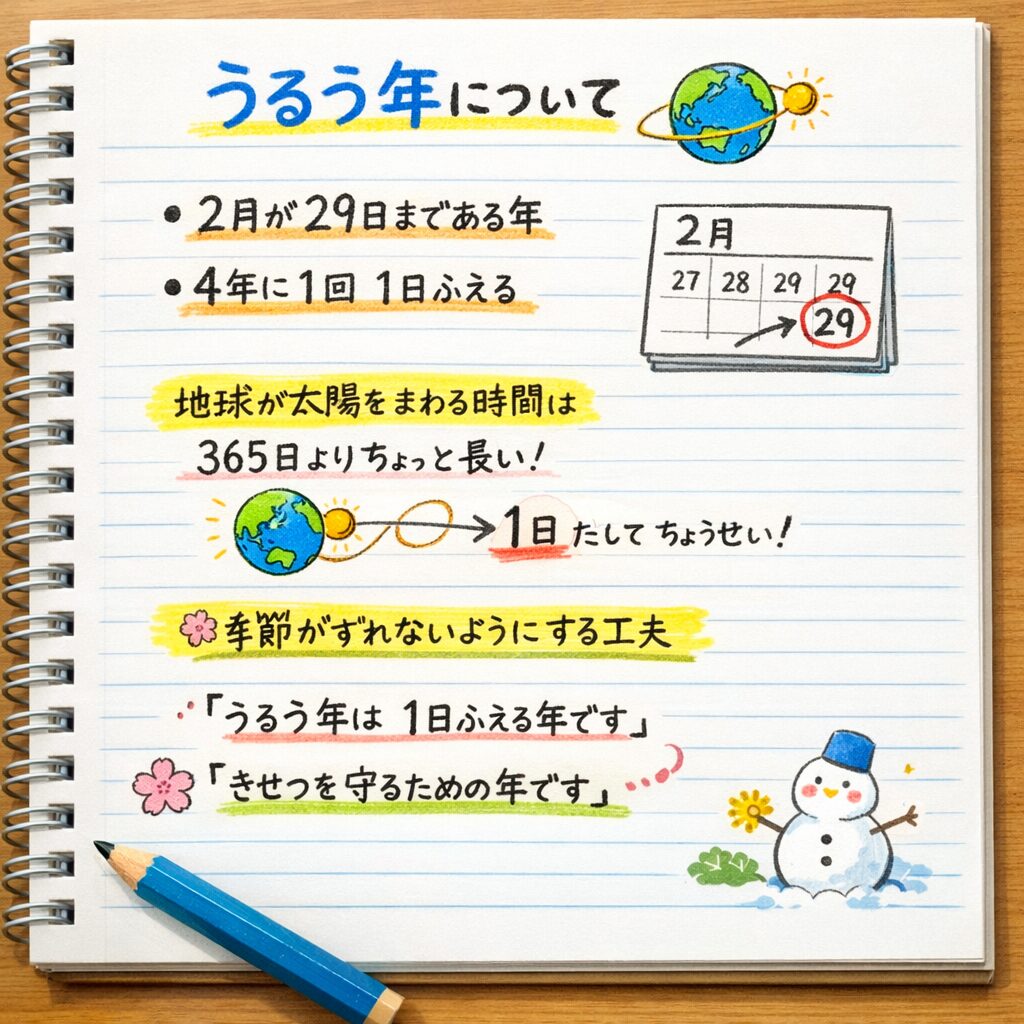 うるう年について
• 2月が29日まである年
• 4年に1回 1日ふえる
2月
27 28 29 29
29
地球が太陽をまわる時間は
365日よりちょっと長い!
1日 たして ちょうせい!
季節がずれないようにする工夫
「うるう年は 1日ふえる年です」
「きせつを守るための年です」